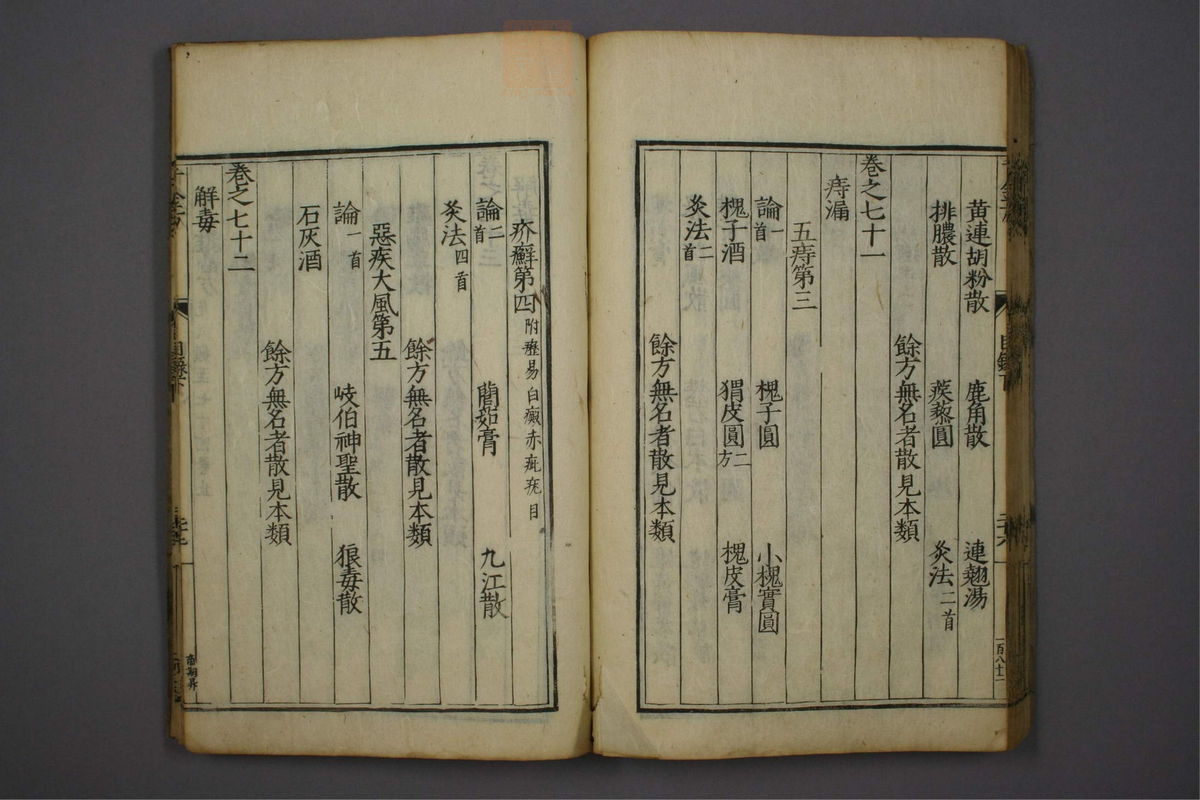 黃連胡粉散 鹿角散 連翹湯
排膿散 蒺藜圓 灸法二首
餘方無名者散見本類
卷之七十一
痔漏
五痔第三
論一首 槐子圓 小槐實圓
槐子酒 猬皮圓二方 槐皮膏
灸法二首
餘方無名者散見本類
一百八十二
疥癬第四附癧易白癜赤疵疣目
論二首 藺茹膏 九江散
灸法四首
餘方無名者散見本類
惡疾大風第五
論一首 岐伯神聖散 狼毒散
石灰酒
餘方無名者散見本類
卷之七十二
解毒